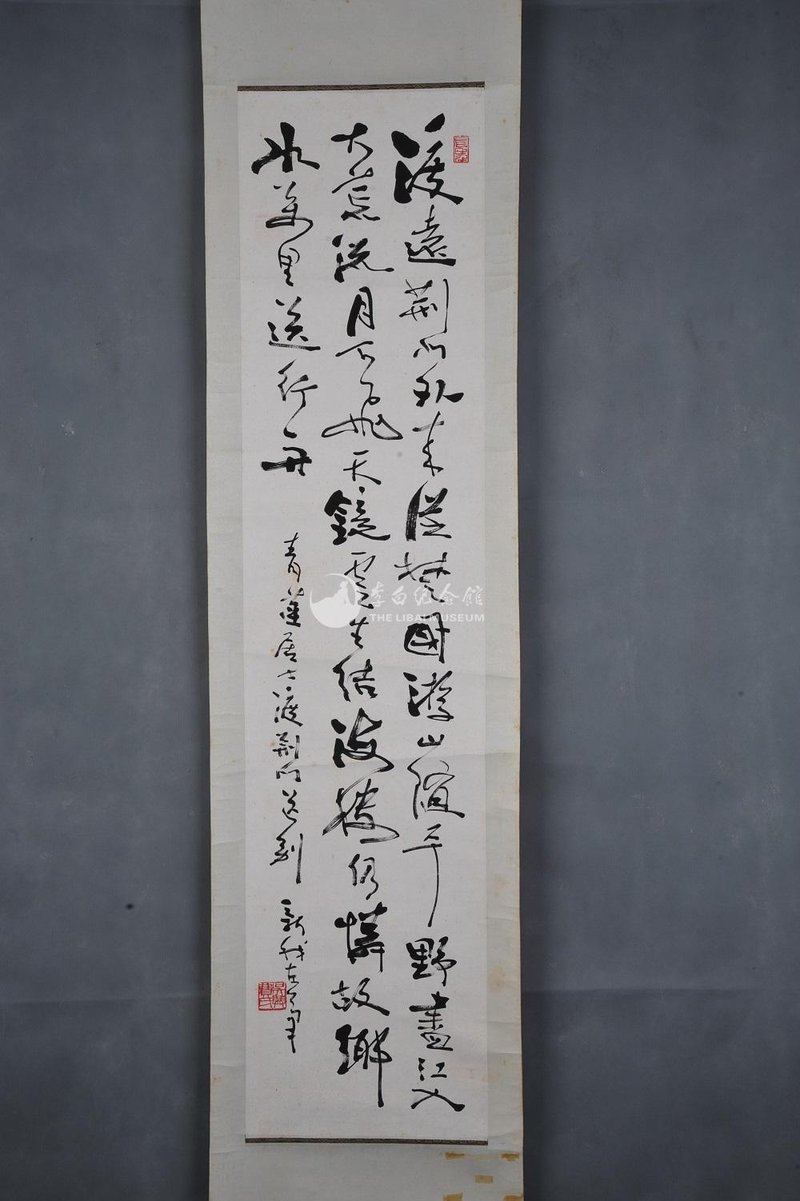 渡遠荊門外来從楚國游山随平野盡江入
大荒流月下飛天鏡雲生結海樓仍憐故鄉
水萬里送行舟
青蓮居士渡荊門送別
新我左筆
李白纪念館
THE LIBAI MUSEUM